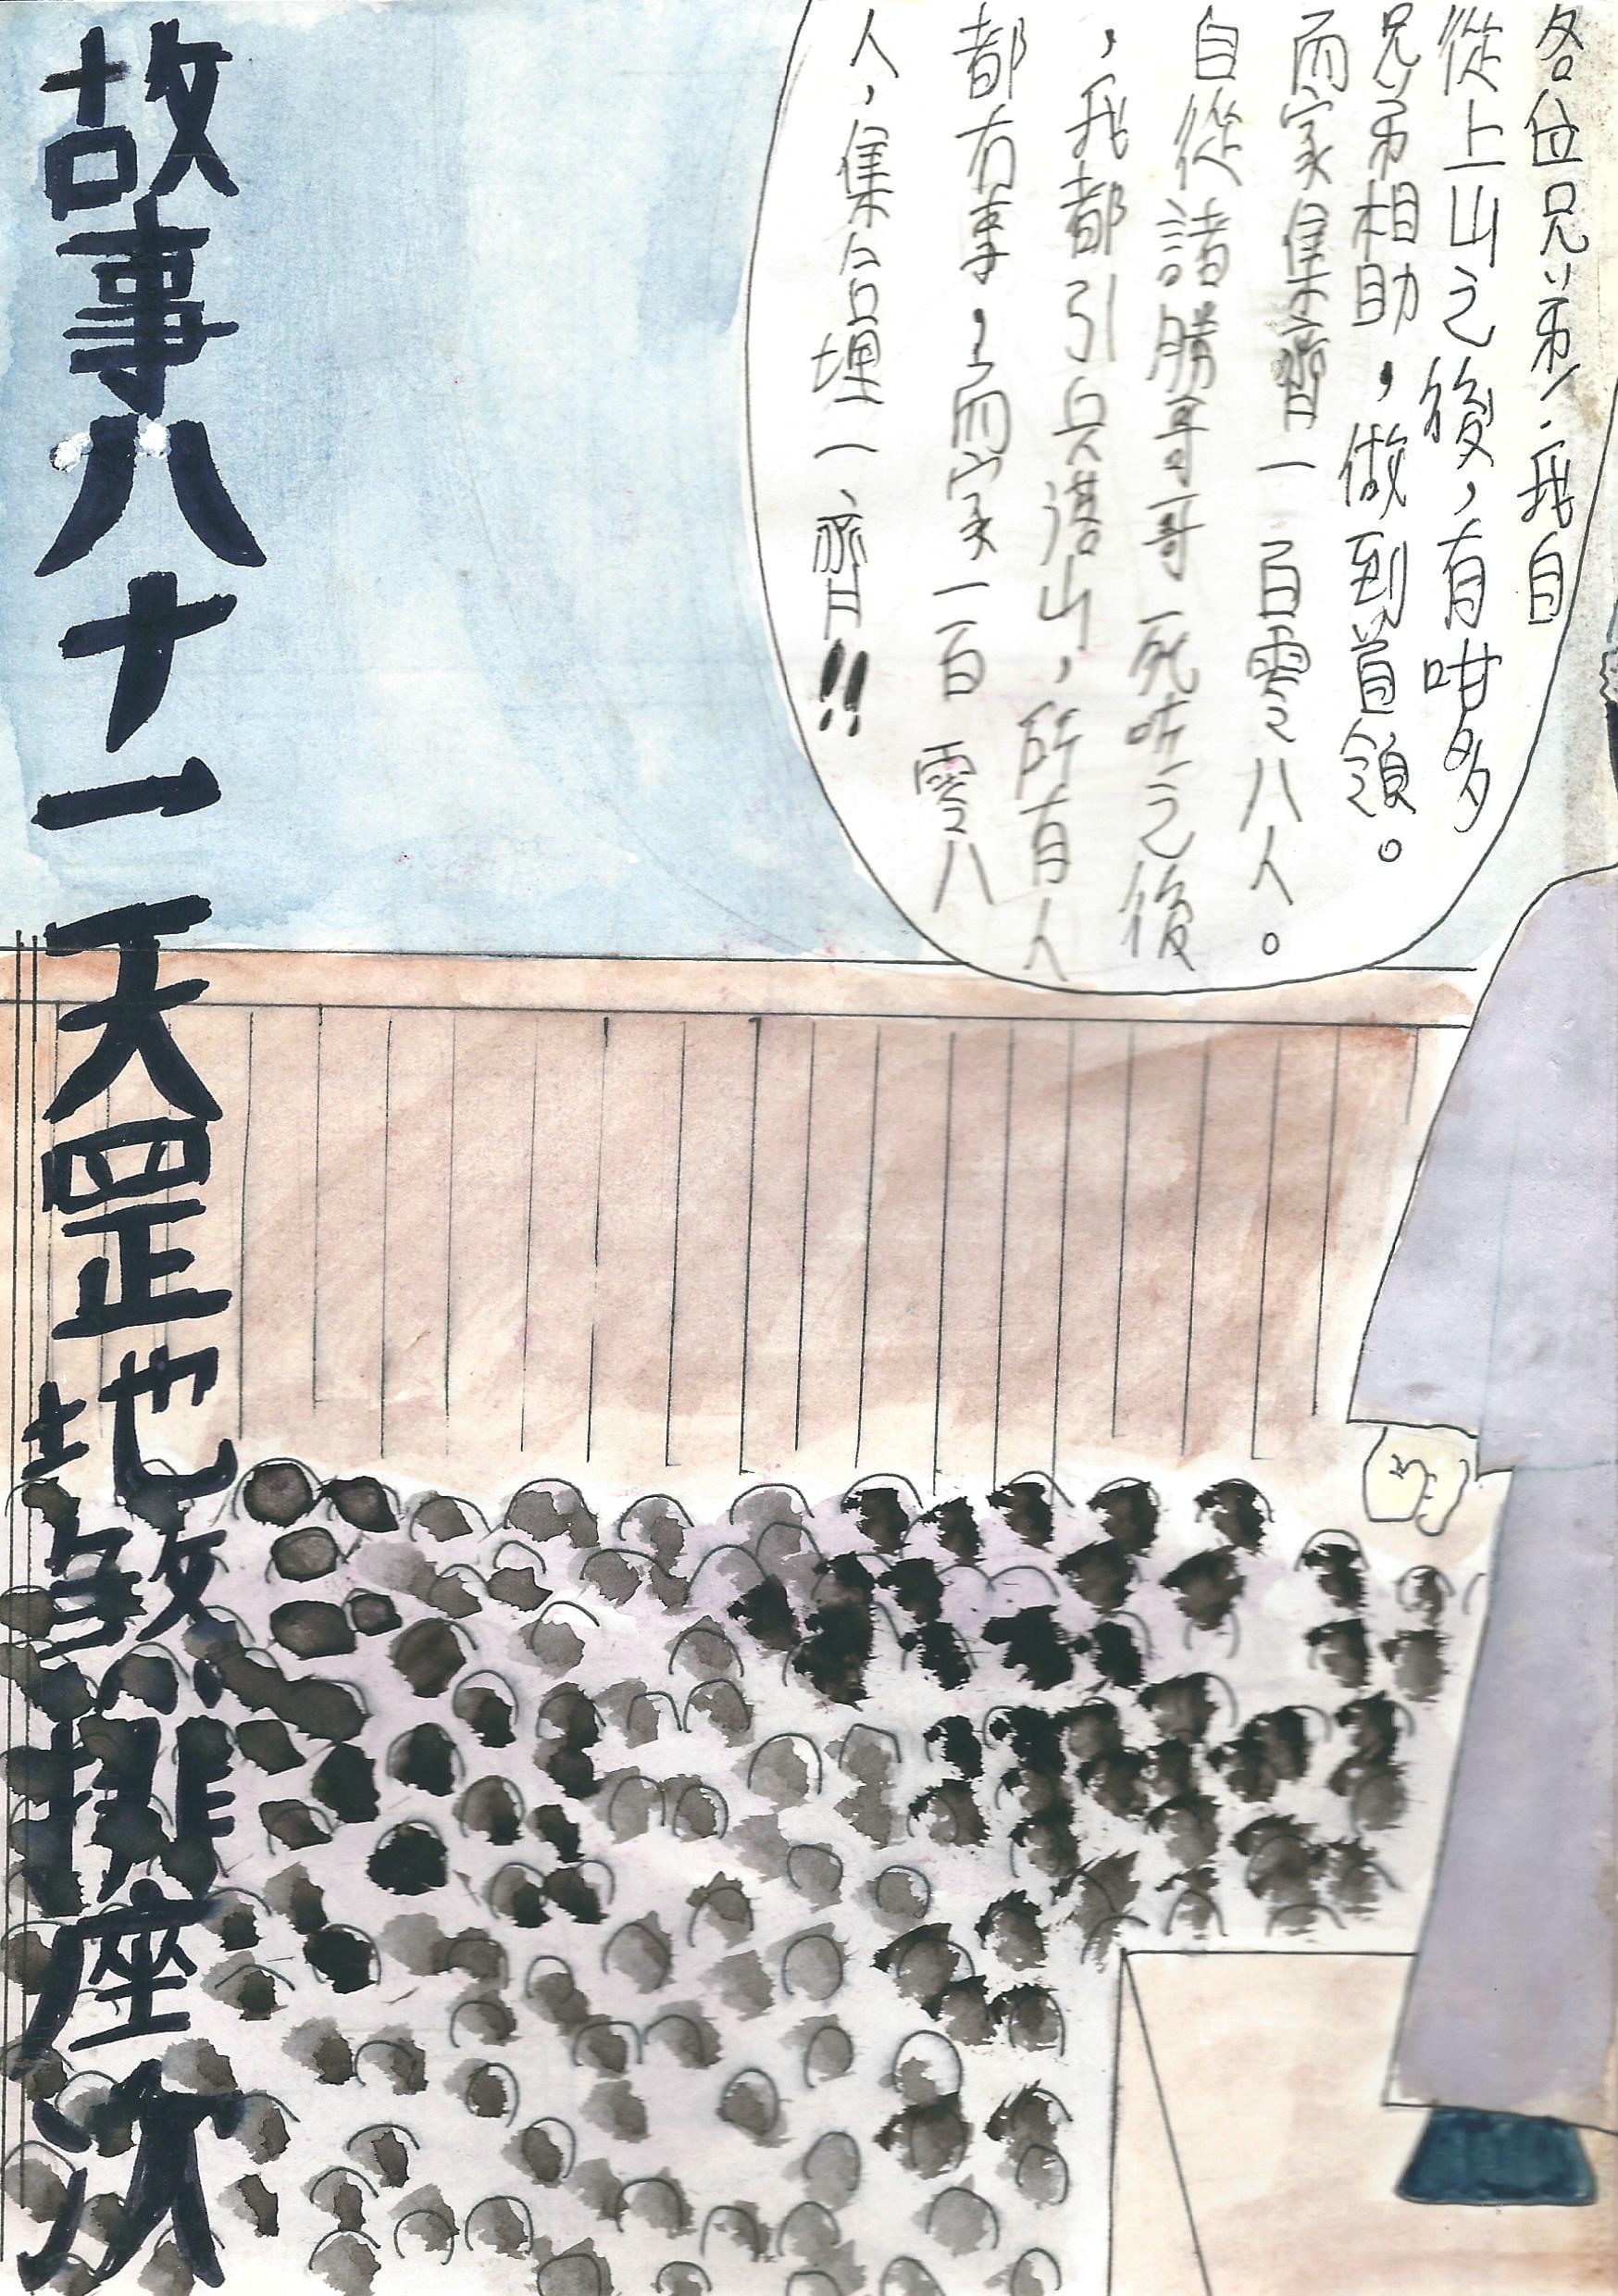 各位兄弟，我自
從上山之後，有咁多
兄弟相助，做到首領。
而家集齊一百零八人。
自從諸勝哥哥死咗之後
，我都引兵落山，所有人
都冇事，而家一百零八
人，集合埋一齊!!
故事八十一天罡地煞排座次